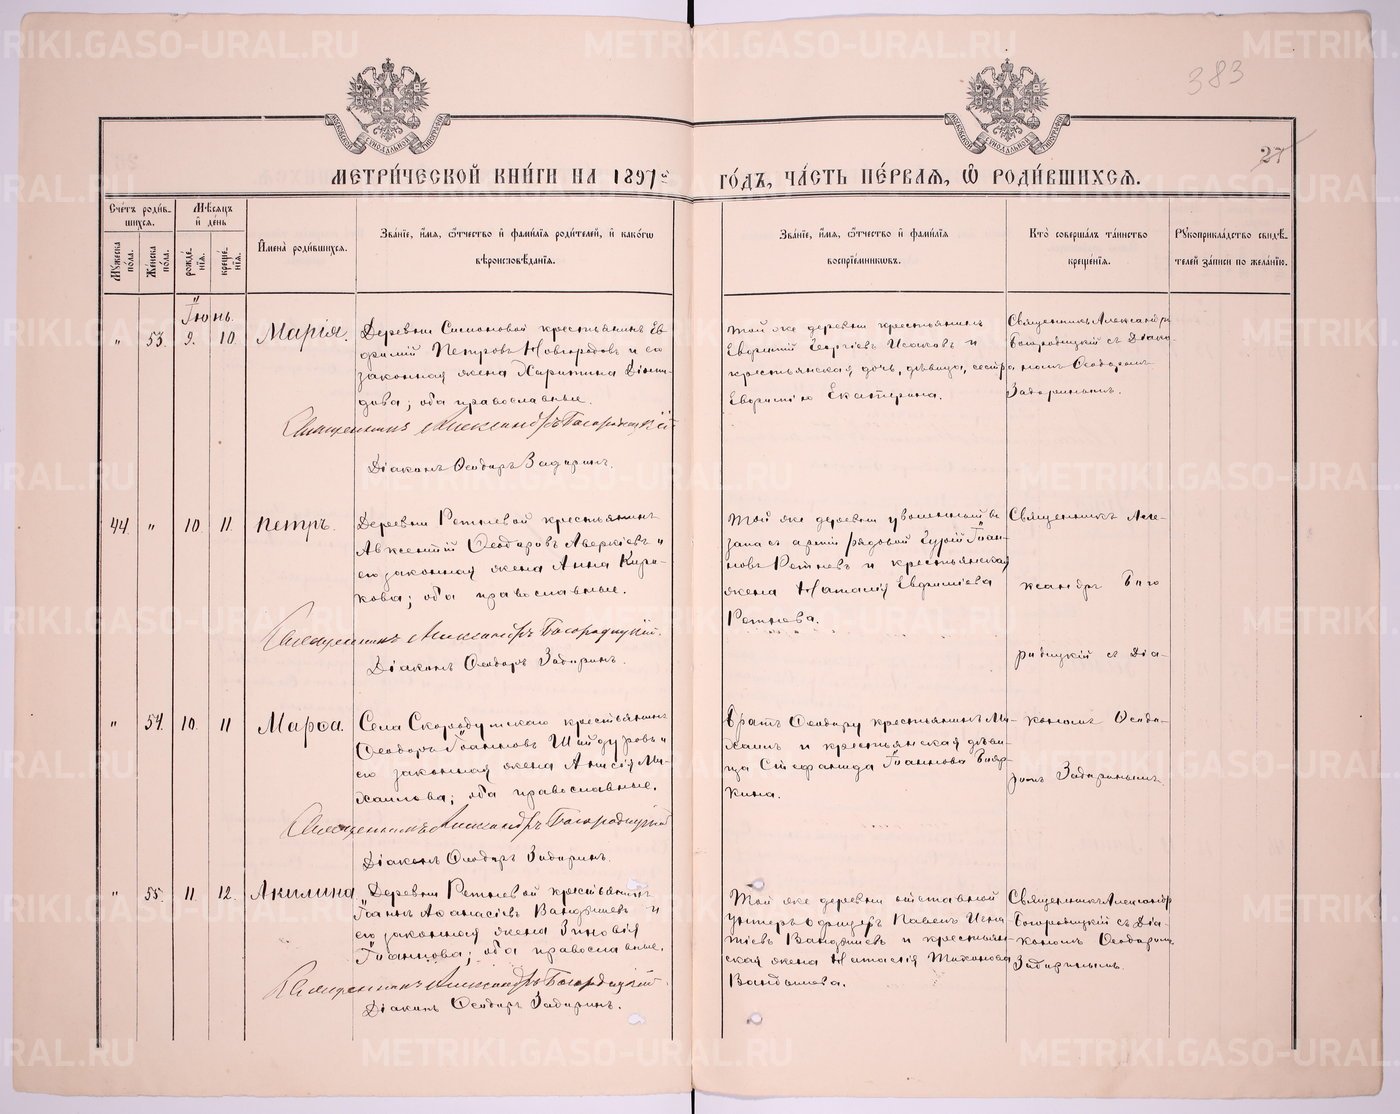 383
27
МЕТРИ́ЧЕСКОЙ КНИ́ГИ НА 1897 ГО́ДЪ, ЧА́СТЬ ПЕ́РВАЯ, Ѡ РОДИ́ВШИХСЯ.
Сче́тъ роди́в-
шихся.
Мѣ́сяцъ
и де́нь
Му́жеска по́ла.
Же́нска по́ла.
рожде́-
нія.
креще́-
нія.
Имена̀ роди́вшихся.
Зва́ніе, и́мя, ѻ́тчество и фами́лія роди́телей, и како́гѡ
вѣроисповѣ́данія.
Зва́ніе, и́мя, ѻ́тчество и фами́лія
воспріе́мниковъ.
Кто̀ соверша́лъ та́инство
креще́нія.
Рукоприкла́дство свидѣ́-
телей за́писи по жела́нію.
Іюнь.
" 53. 9. 10. Марія.
Деревни Симоновой крестьянинъ Ев-
фимій Петровъ Новгородовъ и его
законная жена Харитина Діони-
дова; оба православные.
Священникъ Александръ Богородицкій
Діаконъ Ѳеодоръ Задоринъ.
Той же деревни крестьянинъ
Евфимій Георгіевъ Исаковъ и
крестьянская дочь, дѣвица, сестра
Евфимію Екатерина.
Священникъ Александръ
Богородицкій съ Діако-
номъ Ѳеодоромъ
Задоринымъ.
44. " 10. 11. Петръ.
Деревни Ретневой крестьянинъ
Авксентій Ѳеодоровъ Аверкіевъ и
его законная жена Анна Кири-
кова; оба православные.
Священникъ Александръ Богородицкій.
Діаконъ Ѳеодоръ Задоринъ.
Той же деревни уволенный въ
запасъ арміи рядовой Гурій Іоан-
новъ Ретневъ и крестьянская
жена Наталія Евфиміева
Ретнева.
Священникъ Але-
ксандръ Бого
родицкій съ Діа-
кономъ Ѳеодо-
ромъ Задоринымъ.
" 54. 10. 11 Марѳа.
Села Скородумскаго крестьянинъ
Ѳеодоръ Іоанновъ Шайдуровъ и
его законная жена Анисія Ми-
хаилова; оба православные.
Священникъ Александръ Богородицкій
Діаконъ Ѳеодоръ Задоринъ.
Братъ Ѳеодору крестьянинъ Ми-
хаилъ и крестьянская дѣви-
ца Стефанида Іоаннова Бояр-
кина.
" 55. 11. 12. Акилина
Деревни Ретневой крестьянинъ
Іоаннъ Аѳанасіевъ Вандышевъ и
его законная жена Зиновія
Іоаннова; оба православные.
Священникъ Александръ Богородицкій.
Діаконъ Ѳеодоръ Задоринъ.
Той же деревни отставной
унтеръ офицеръ Павелъ Игна-
тіевъ Вандышевъ и крестьян-
ская жена Наталія Тихонова
Вандышева.
Священникъ Александръ
Богородицкій съ Діа-
кономъ Ѳеодоромъ
Задоринымъ.
METRIKI.GASO-URAL.RU